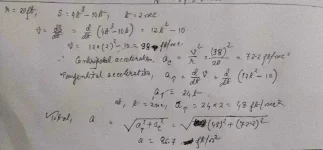 r = 20ft, S = 4t³ - 10t, t = 2sec
v = ds/dt = d/dt (4t³ - 10t) = 12t² - 10
v = 12×(2)² - 10 = 38 ft/sec
∴ Centripetal acceleration a_c = v²/r = (38)²/20 = 72.2 ft/sec²
Tangential acceleration, a_T = d/dt v = d/dt (12t² - 10)
a_T = 24t
at, t = 2sec, a_T = 24×2 = 48 ft/sec²
a = √(a_T² + a_c²) = √((48)² + (72.2)²)
a = 86.7 ft/sec²